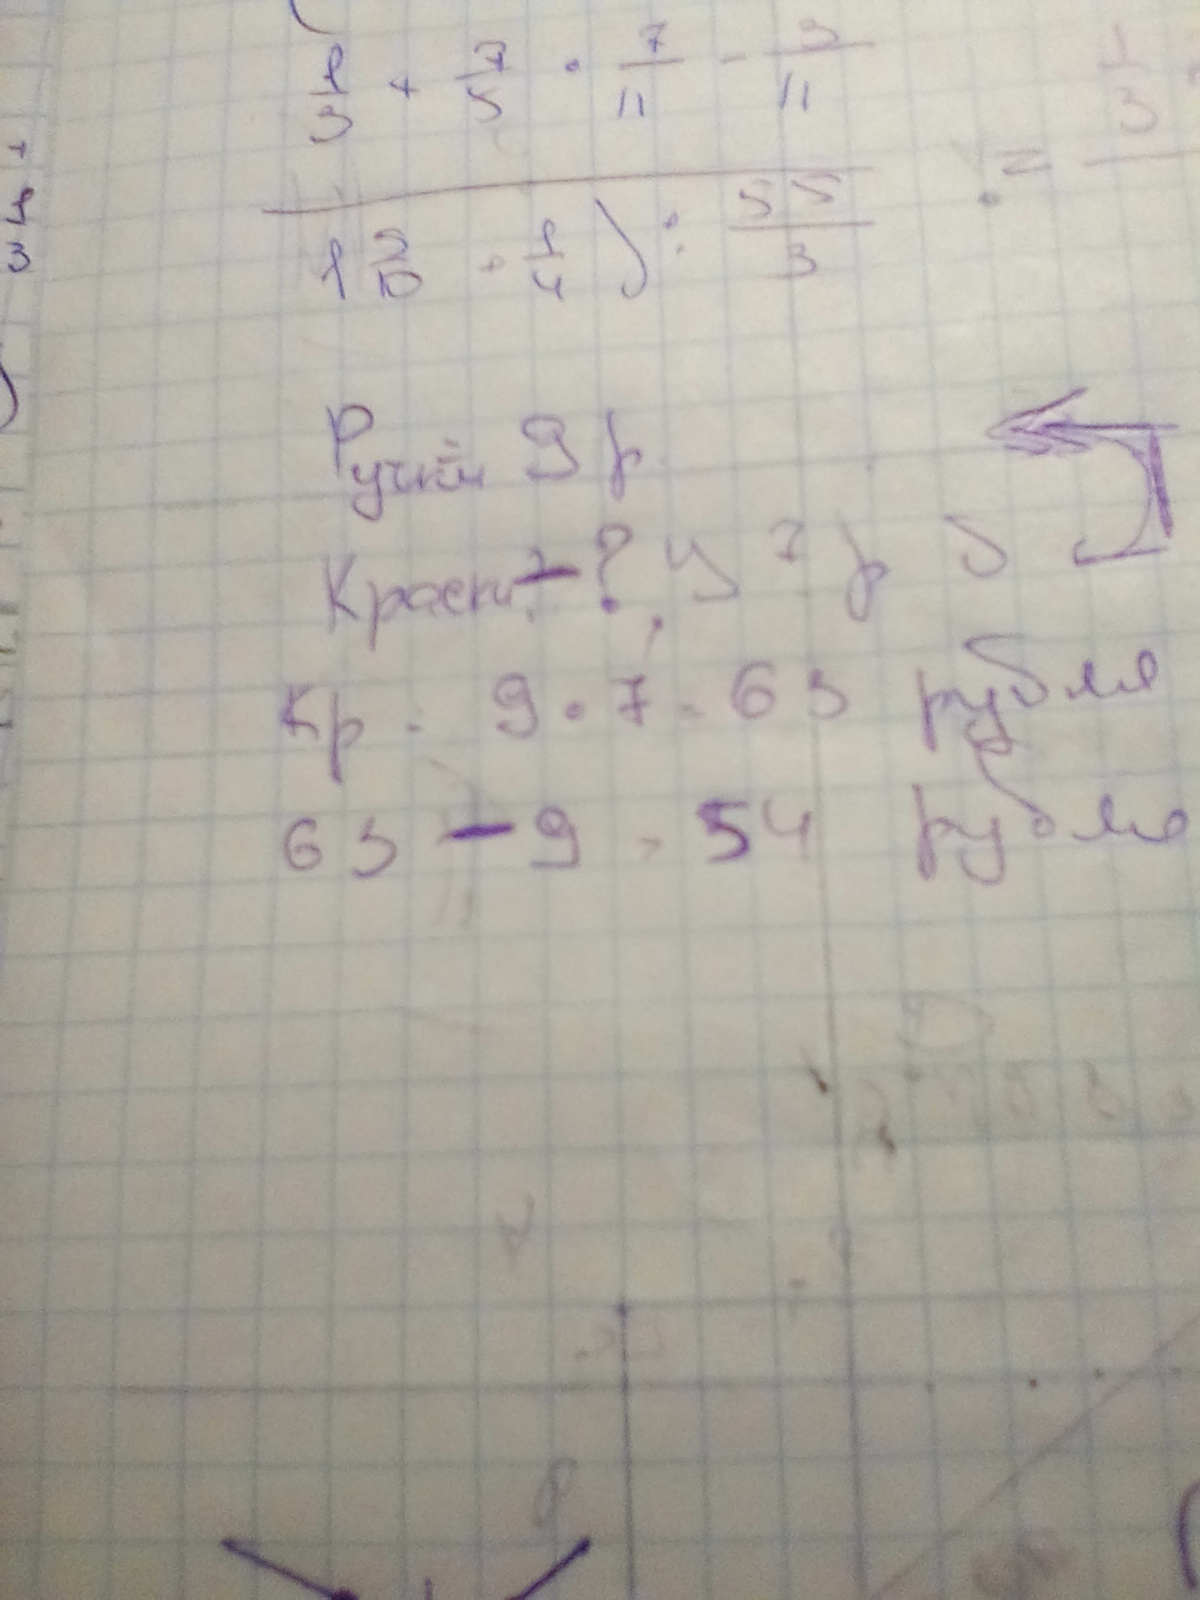 1/3 + 7/5 · 7/11 - 3/11
) : 55/3 =
1/3
+
1
3
Ручки 9 р
Краски - ? 7 р
Кр - 9 · 7 = 63 рубля
63 - 9 = 54 рубля